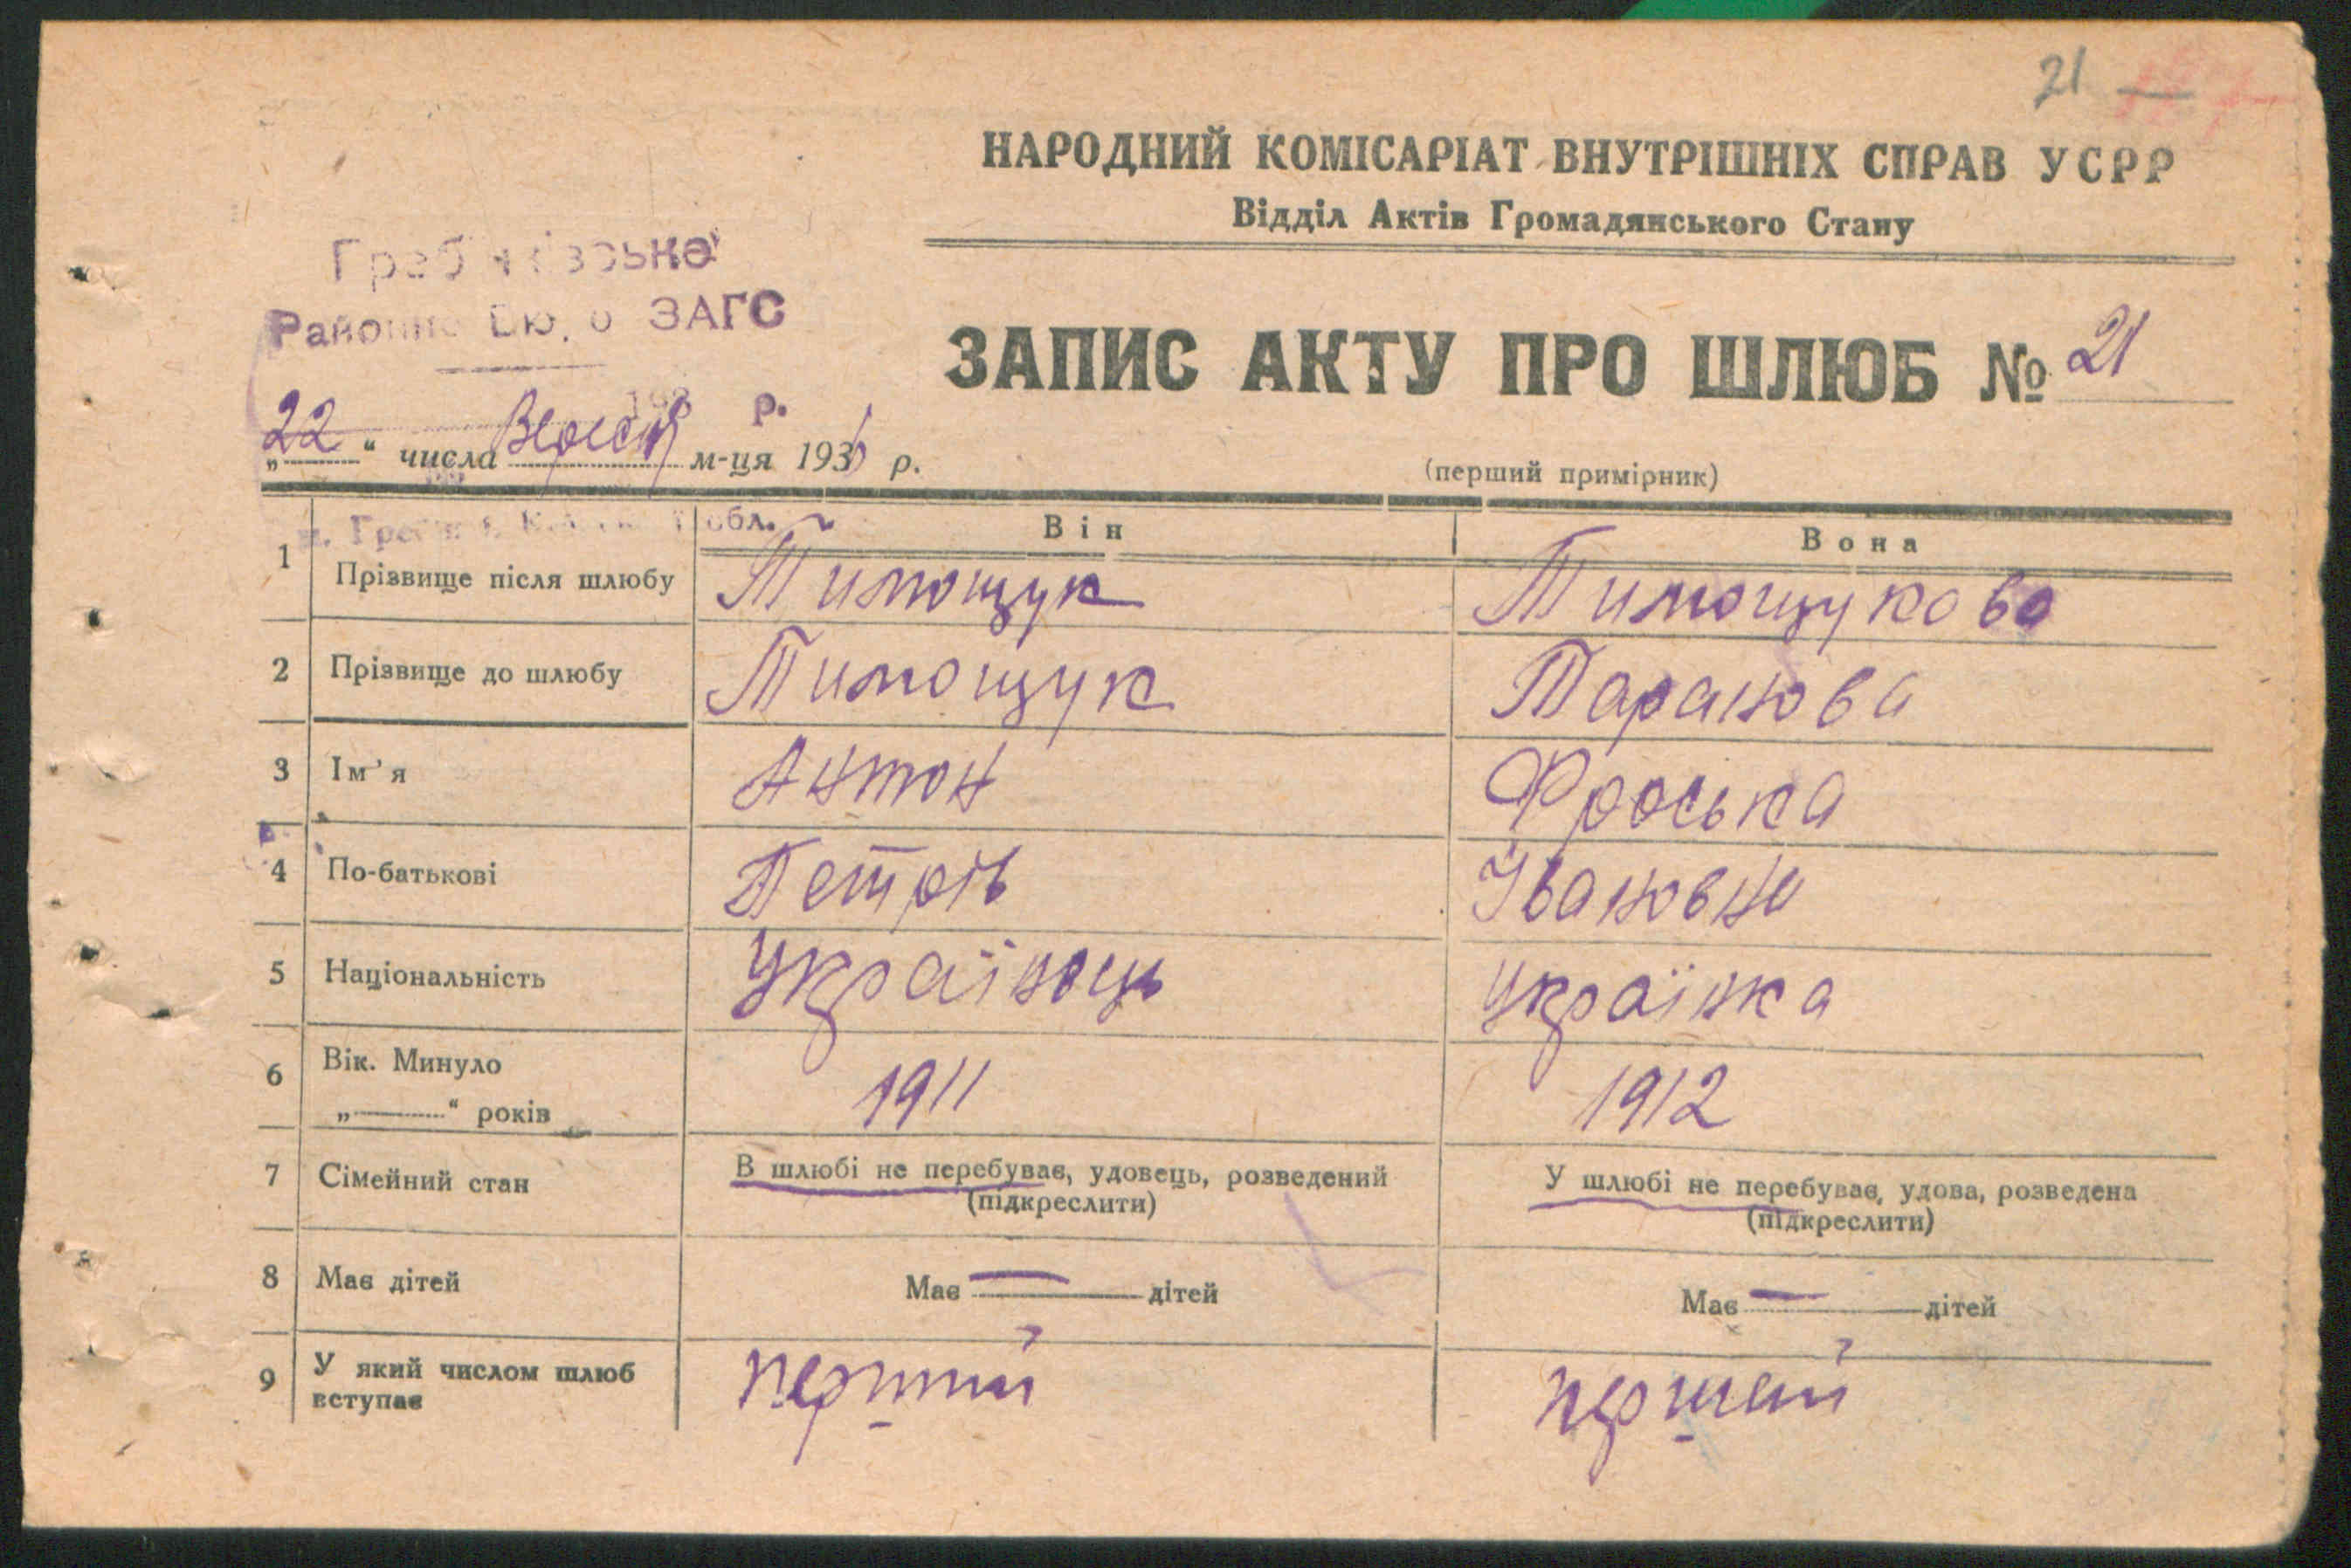 21
НАРОДНИЙ КОМІСАРІАТ ВНУТРІШНІХ СПРАВ УСРР
Відділ Актів Громадянського Стану
Районне Бюро ЗАГС
193 р.
ЗАПИС АКТУ ПРО ШЛЮБ № 21
„22“ числа м-ця 193 р.
(перший примірник)
обл.
Він Вона
1 Прізвище після шлюбу Тимощук Тимощукова
2 Прізвище до шлюбу Тимощук Таранова
3 Ім’я Антон Фроська
4 По-батькові Петров Івановна
5 Національність Українець Українка
6 Вік. Минуло 1911 1912
„ “ років
7 Сімейний стан В шлюбі не перебуває, удовець, розведений У шлюбі не перебуває, удова, розведена
(підкреслити) (підкреслити)
8 Має дітей Має — дітей Має — дітей
9 У який числом шлюб перший перший
вступає